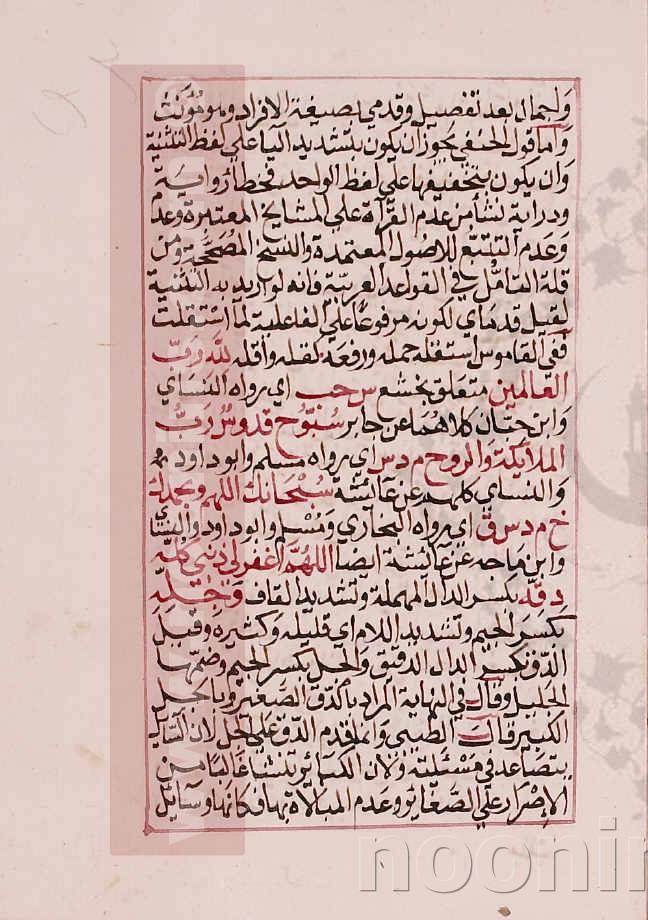 واجمال بعد تفصيل وقدمي بصيغة الافراد وهو مؤنث
واما قول الحنفي يجوز ان يكون بتشديد اليا علي لفظ التثنية
وان يكون بتخفيفها علي لفظ الواحد فخطا رواية
ودراية نشأ من عدم القرآة علي المشايخ المعتبرة وعد
وعدم التتبع للاصول المعتمدة والنسخ المصححة ومن
قلة التامل في القواعد العربية فانه لو اريد به التثنية
لقيل قدماي لكونه مرفوعا علي الفاعلية لما استقلت
ففي القاموس استقله حمله ورفعه كقله واقله لله رب
العالمين متعلق بخشع س حب اي رواه النساي
وابن حبان كلاهما عن جابر سبوح قدوس رب
الملايكة والروح م د س اي رواه مسلم وابو داود
والنساي كلهم عن عايشة سبحانك اللهم وبحمدك
خ م د س ق اي رواه البخاري ومسلم وابو داود والنساي
وابن ماجه عن عايشة ايضا اللهم اغفر لي ذنبي كله
دقه بكسر الدال المهملة وتشديد القاف وجله
بكسر الجيم وتشديد اللام اي قليله وكثيره وقيل
الدق بكسر الدال الدقيق والجل بكسر الجيم وضمها
الجليل وقال في النهاية المراد بالدق الصغير وبالجل
الكبير قال الطيبي وانما قدم الدق علي الجل لان السايل
يتصاعد في مسئلته ولان الكبائر تنشأ غالبا من
الاصرار علي الصغائر وعدم المبالاة بها فكانها وسايل
noonin